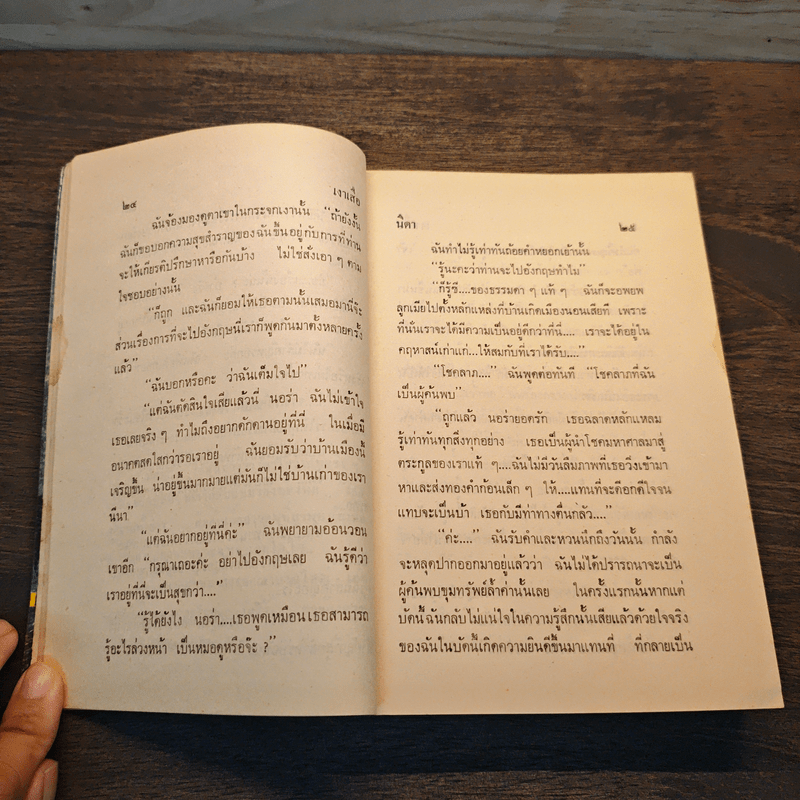 ๒๔ เงาเสือ
ฉันจ้องมองดูตาเขาในกระจกเงานั้น “ถ้ายังงั้น
ฉันก็ขอบอกความสุขสำราญของฉันขึ้นอยู่กับการที่ท่าน
จะให้เกียรติปรึกษาหารือกันบ้าง ไม่ใช่สั่งเอา ๆ ตาม
ใจชอบอย่างนั้น
“ก็ถูก และฉันก็ยอมให้เธอตามนั้นเสมอมานี่จ๊ะ
ส่วนเรื่องการที่จะไปอังกฤษนี่เราก็พูดกันมาตั้งหลายครั้ง
แล้ว”
“ฉันบอกหรือคะ ว่าฉันเต็มใจไป”
“แต่ฉันตัดสินใจเสียแล้วนี่ นอร่า ฉันไม่เข้าใจ
เธอเลยจริง ๆ ทำไมถึงอยากดักดานอยู่ที่นี่ ในเมื่อมี
อนาคตสดใสกว่ารอเราอยู่ ฉันยอมรับว่าบ้านเมืองนี้
เจริญขึ้น น่าอยู่ขึ้นมากมายแต่มันก็ไม่ใช่บ้านเก่าของเรา
นี่นา”
“แต่ฉันอยากอยู่ที่นี่ค่ะ” ฉันพยายามอ้อนวอน
เขาอีก “กรุณาเถอะค่ะ อย่าไปอังกฤษเลย ฉันรู้ดีว่า
เราอยู่ที่นี่จะเป็นสุขกว่า....”
“รู้ได้ยังไง นอร่า....เธอพูดเหมือนเธอสามารถ
รู้อะไรล่วงหน้า เป็นหมอดูหรือจ๊ะ ?”
นิดา ๒๕
ฉันทำไม่รู้เท่าทันถ้อยคำหยอกเย้านั้น
“รู้นะคะว่าท่านจะไปอังกฤษทำไม”
“ก็รู้ซี....ของธรรมดา ๆ แท้ ๆ ฉันก็จะอพยพ
ลูกเมียไปตั้งหลักแหล่งที่บ้านเกิดเมืองนอนเสียที เพราะ
ที่นั่นเราจะได้มีความเป็นอยู่ดีกว่าที่นี่.... เราจะได้อยู่ใน
คฤหาสน์เก่าแก่...ให้สมกับที่เราได้รับ....”
“โชคลาภ....” ฉันพูดต่อทันที “โชคลาภที่ฉัน
เป็นผู้ค้นพบ”
“ถูกแล้ว นอร่ายอดรัก เธอฉลาดหลักแหลม
รู้เท่าทันทุกสิ่งทุกอย่าง เธอเป็นผู้นำโชคมหาศาลมาสู่
ตระกูลของเราแท้ ๆ....ฉันไม่มีวันลืมภาพที่เธอวิ่งเข้ามา
หาและส่งทองคำก้อนเล็ก ๆ ให้....แทนที่จะดีอกดีใจจน
แทบจะเป็นบ้า เธอกับมีท่าทางตื่นกลัว....”
“ค่ะ....” ฉันรับคำและหวนนึกถึงวันนั้น กำลัง
จะหลุดปากออกมาอยู่แล้วว่า ฉันไม่ได้ปรารถนาจะเป็น
ผู้ค้นพบขุมทรัพย์ล้ำค่านั้นเลย ในครั้งแรกนั้นหากแต่
บัดนี้ฉันกลับไม่แน่ใจในความรู้สึกนั้นเสียแล้วด้วยใจจริง
ของฉันในบัดนี้เกิดความยินดีขึ้นมาแทนที่ ที่กลายเป็น